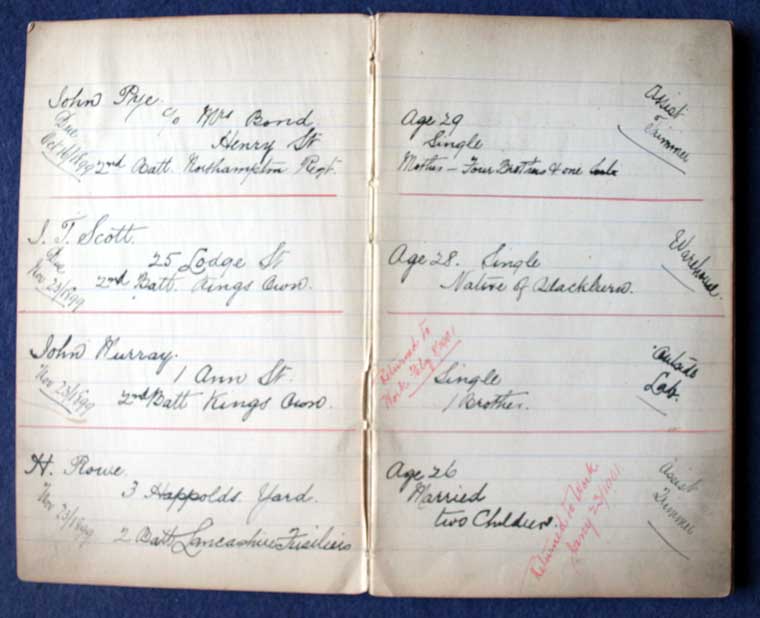 John Pye.
c/o Mrs Bond
Due
Oct 16/1899
Henry St
2nd Batt. Northampton Regt.
J. T. Scott.
Due
Nov 23/1899
25 Lodge St
2nd Batt Kings Own.
John Murray.
Nov 23/1899
1 Ann St.
2nd Batt Kings Own.
H. Rowe.
Nov 23/1899
3 Happolds Yard.
2 Batt Lancashire Fusiliers
Age 29
Single
Mother - Four Brothers & one
Assist
Trimmer
Age 28. Single
Native of Blackburn.
Warehouse.
Returned to
Work Feby
Single
1 Brother.
Outside
Lab.
Age 26
Married
two Children.
Returned to Work
Jany 23/1901
Assist
Trimmer